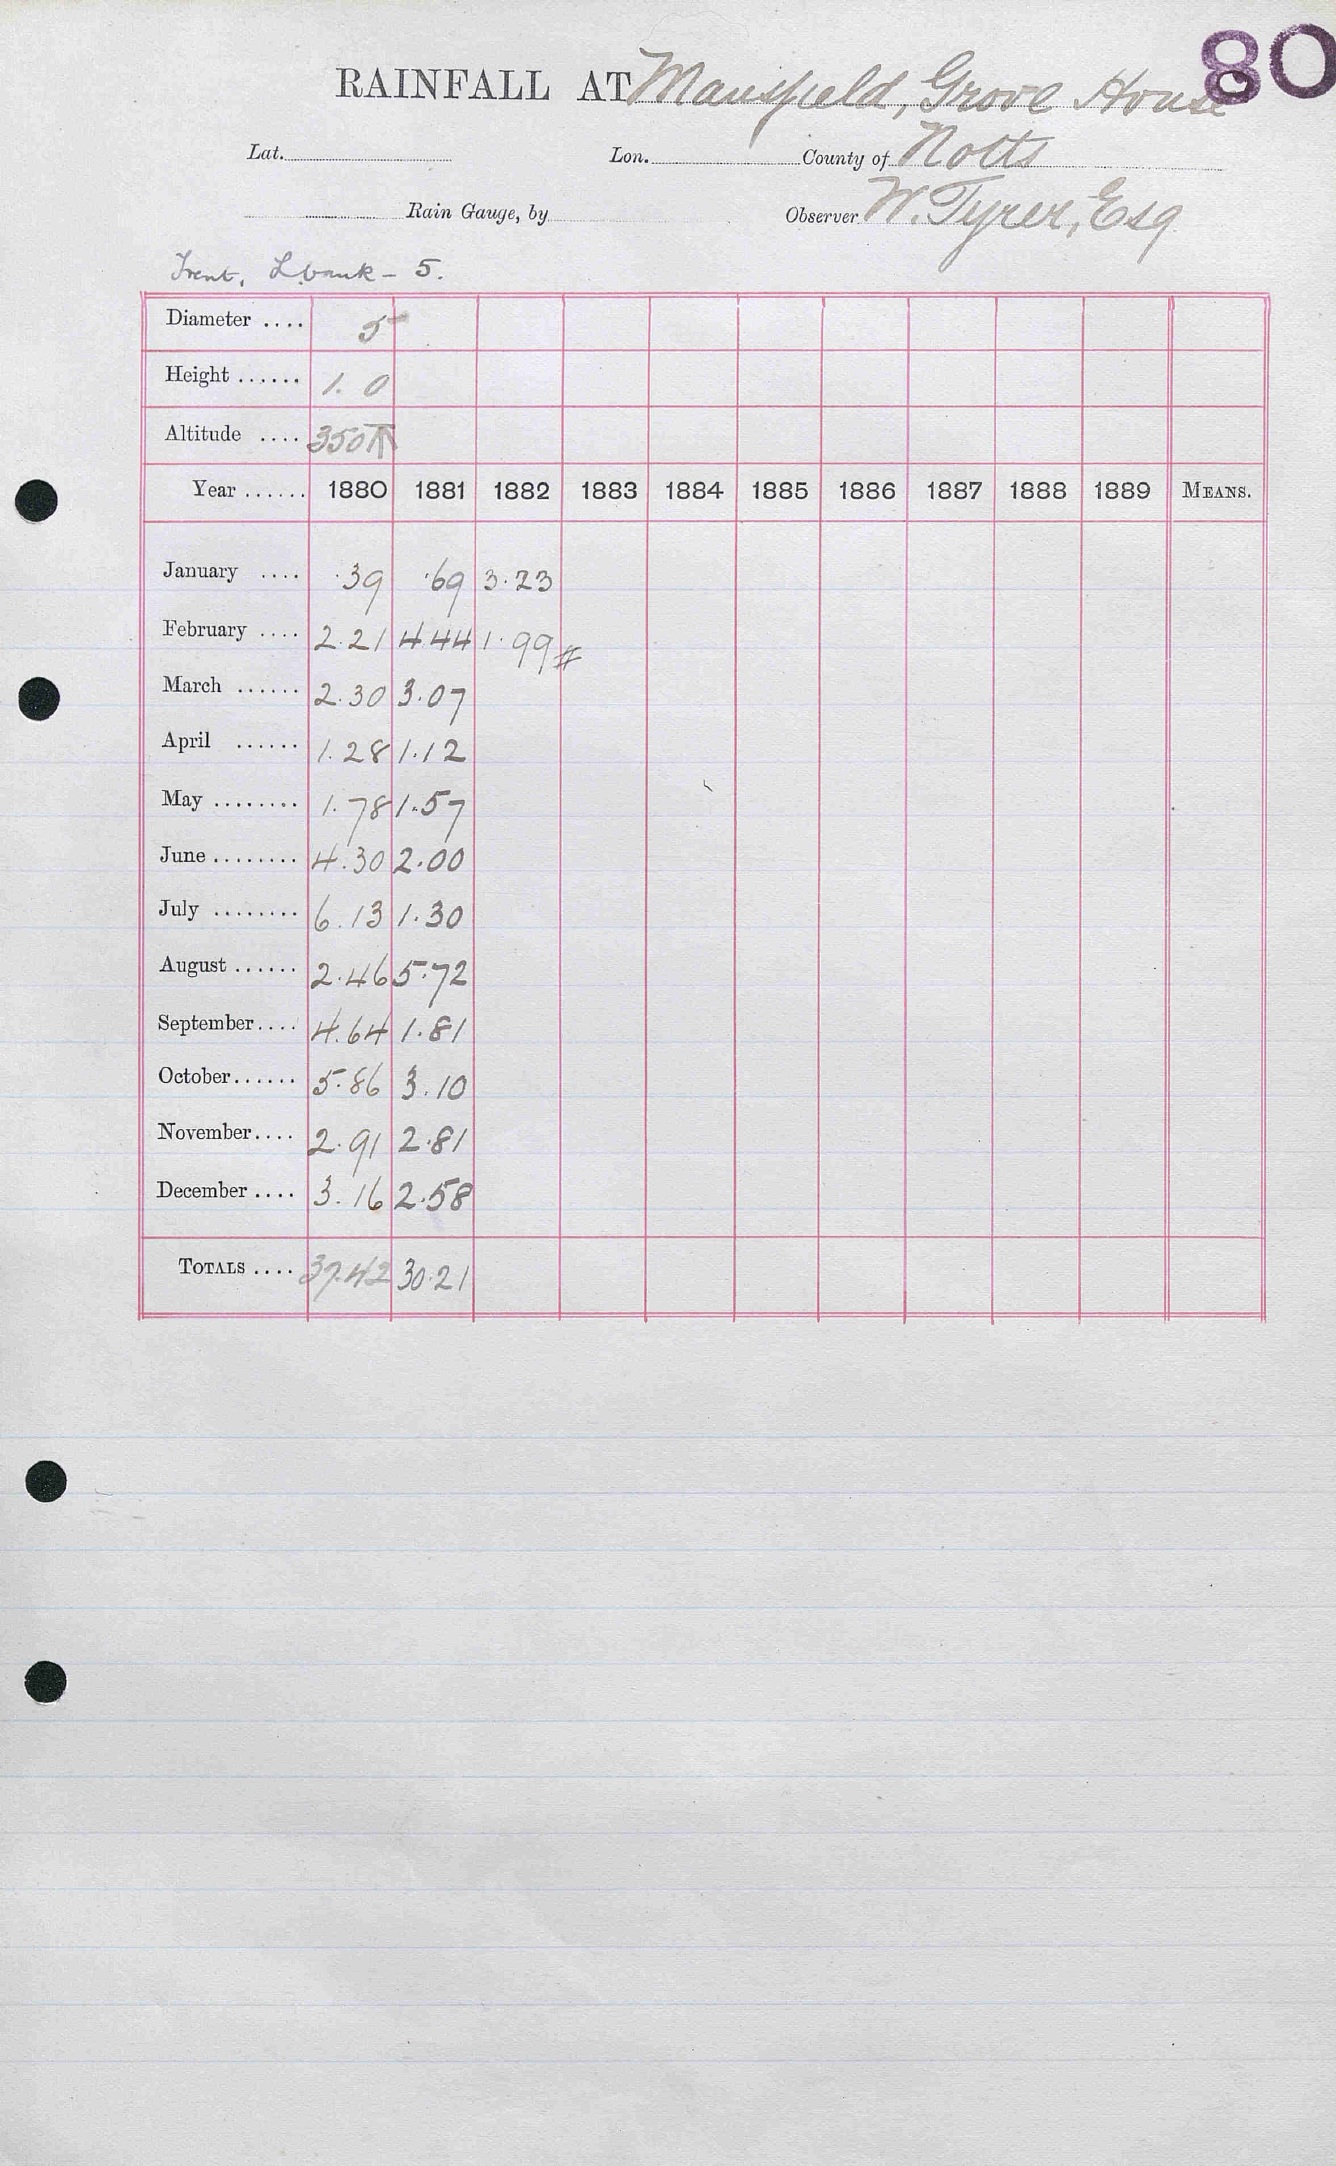 80
RAINFALL AT Mansfield, Grove House
Lat. Lon. County of Notts
Rain Gauge, by Observer W. Tyrer, Esq
Trent, L bank - 5.
Diameter .... 5
Height ...... 1. 0
Altitude .... 350 T
Year ...... 1880 1881 1882 1883 1884 1885 1886 1887 1888 1889 MEANS.
January .... .39 .69 3.23
February .... 2.21 4.44 1.99 #
March ...... 2.30 3.07
April ...... 1.28 1.12
May ........ 1.78 1.57
June ........ 4.30 2.00
July ........ 6.13 1.30
August ...... 2.46 5.72
September.... 4.64 1.81
October...... 5.86 3.10
November.... 2.91 2.81
December .... 3.16 2.58
TOTALS .... 37.42 30.21